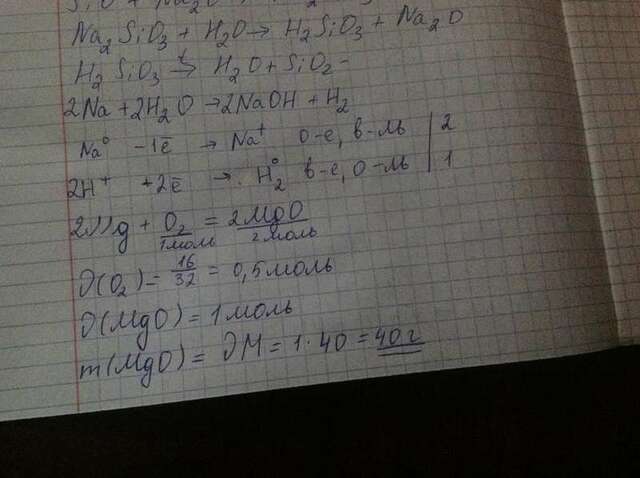 Na₂SiO₃ + H₂O → H₂SiO₃ + Na₂O
H₂SiO₃ →ᵗ H₂O + SiO₂
2Na + 2H₂O → 2NaOH + H₂
Na⁰ - 1ē → Na⁺ о-е, в-ль | 2
2H⁺ + 2ē → H₂⁰ в-е, о-ль | 1
2Mg + O₂ = 2MgO
1моль 2моль
∂(O₂) = 16/32 = 0,5моль
∂(MgO) = 1моль
m(MgO) = ∂M = 1·40 = 40г